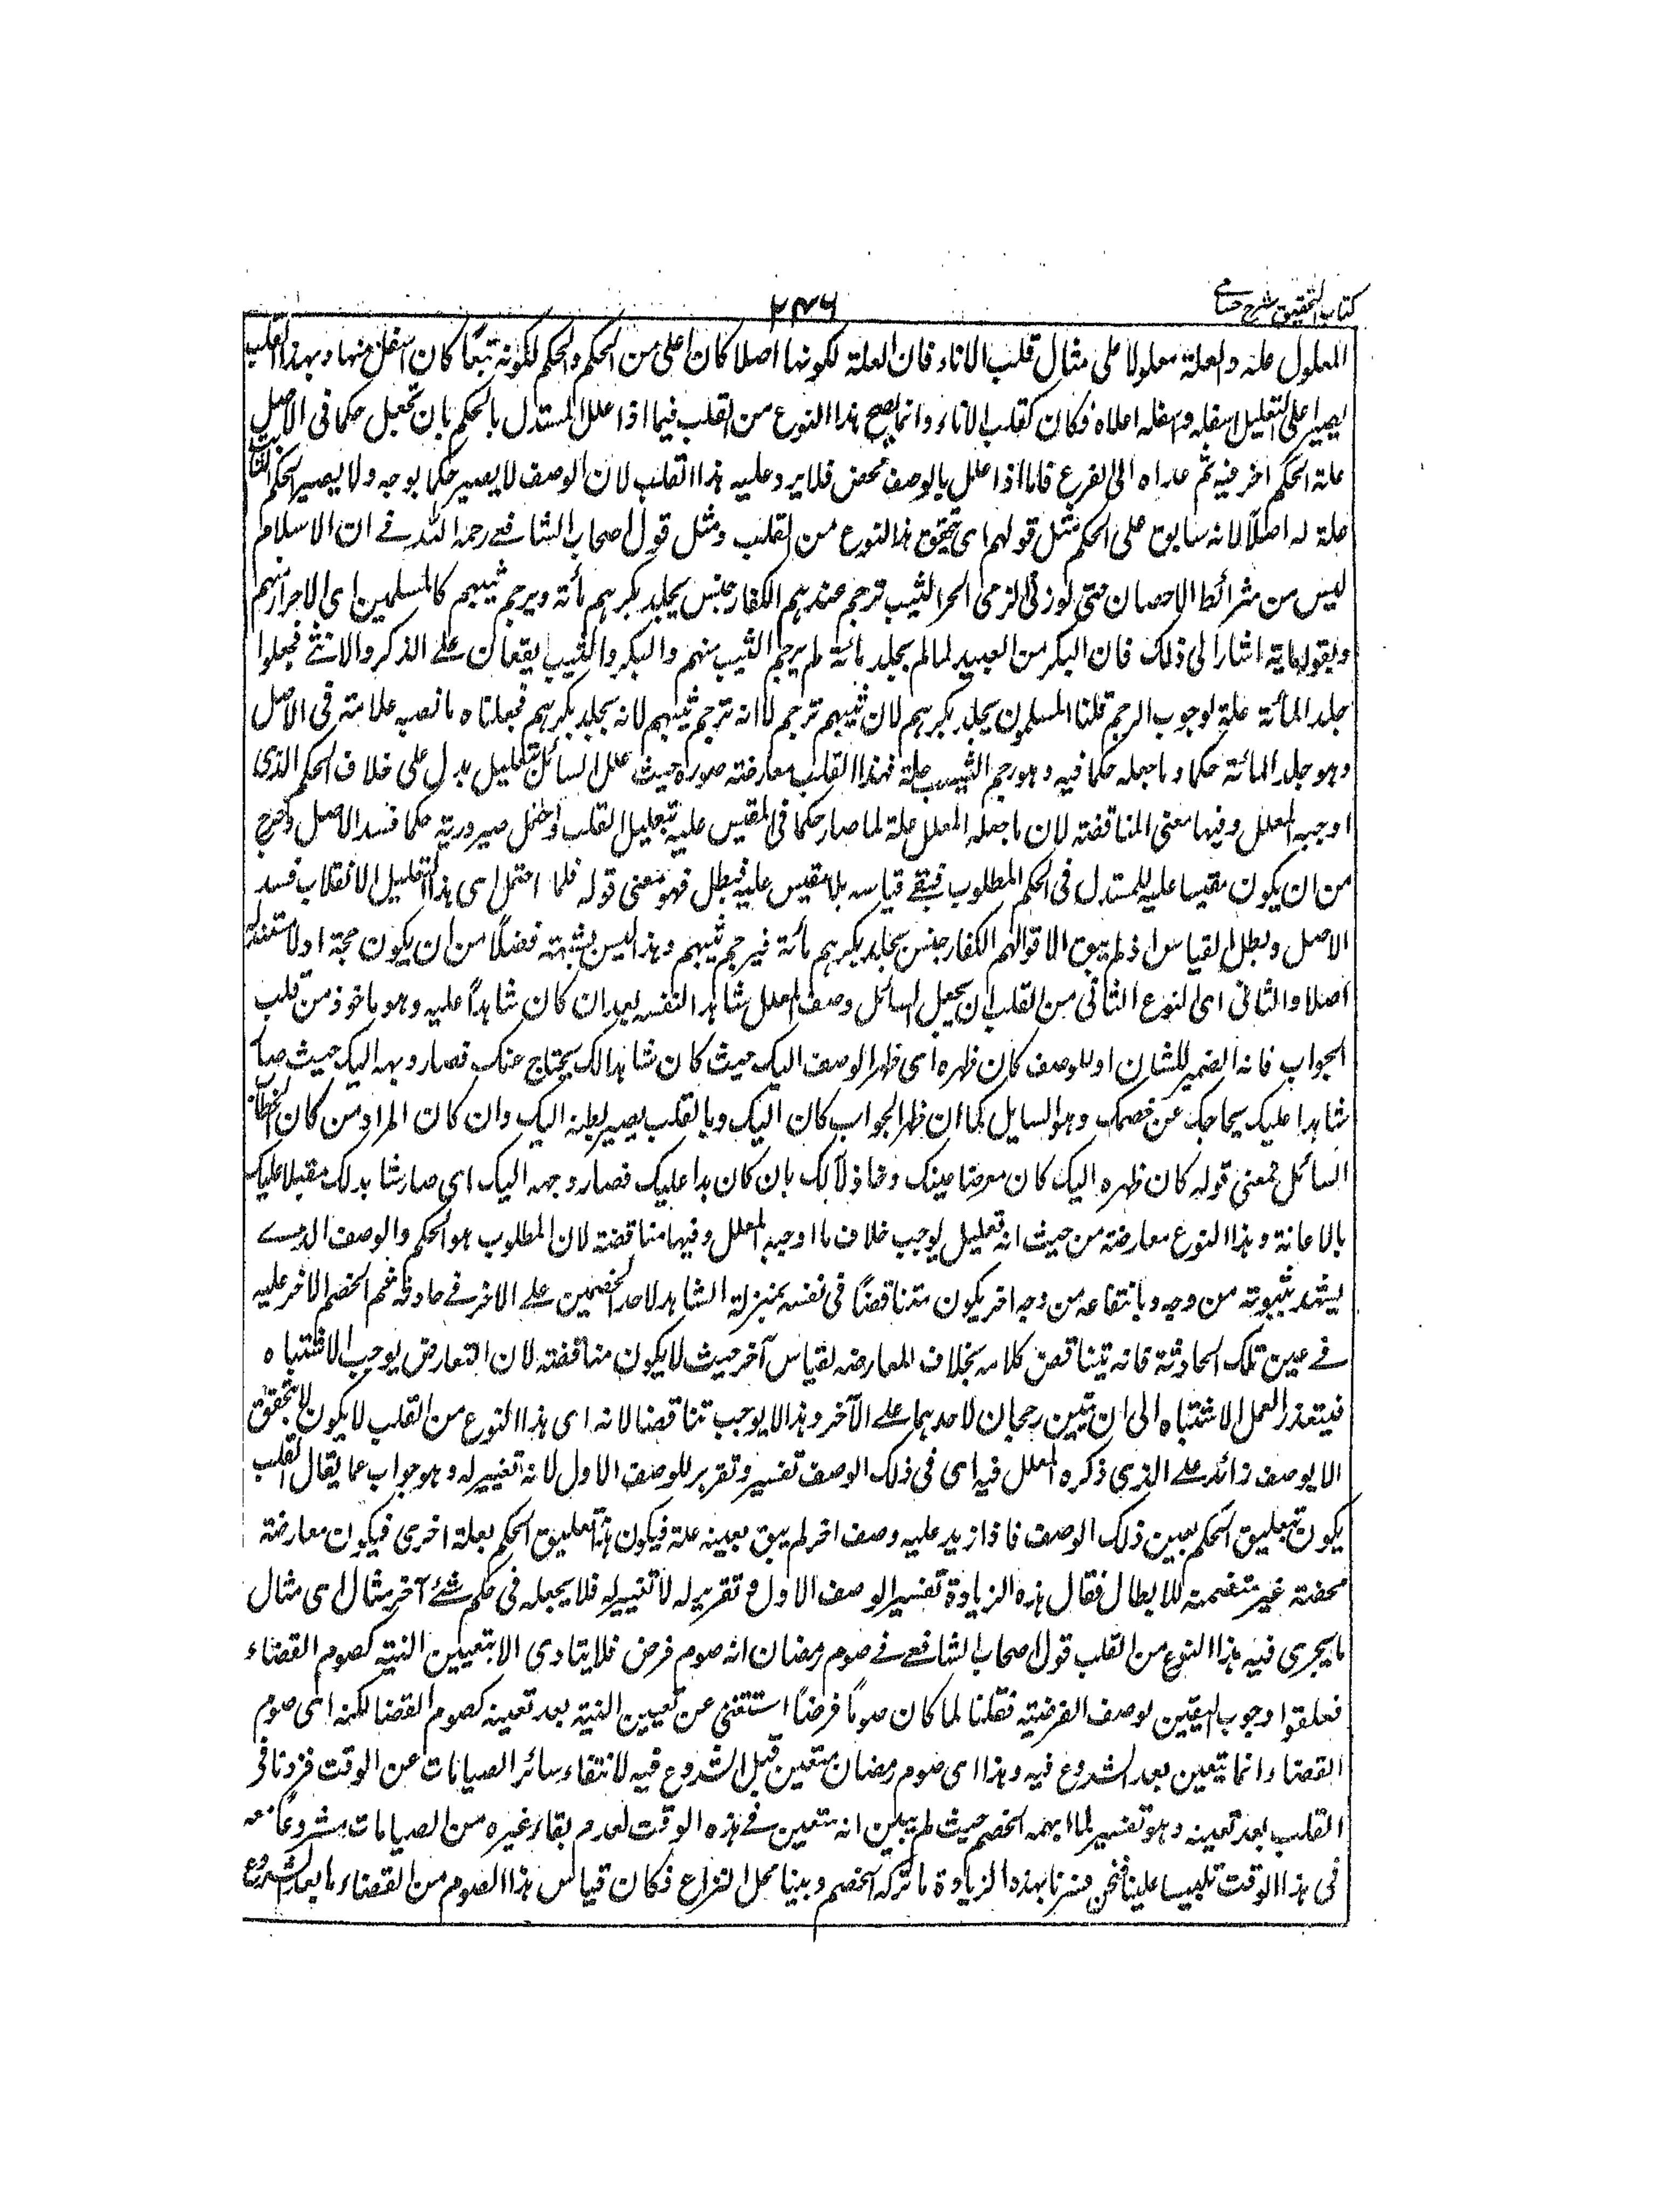 كتاب التحقيق شرح حسامی
٢٣٦
المعلول علة والعلة معلولا على مثال قلب الاناء فان العلة لكونها اصلا كان اعلى من الحكم والحكم لكونه تبعا كان اسفل منها وبهذا القلب
يصير اعلى التعليل اسفله واسفله اعلاه فكان كقلب الاناء وانما يصح هذا النوع من القلب فيما اذا علل المستدل بالحكم بان تجعل حكما فى الاصل
علة لحكم اخر فيه ثم عداه الى الفرع فاما اذا علل بالوصف المحض فلا يرد عليه هذا القلب لان الوصف لا يصير حكما بوجه ولا يصير الحكم الثابت
علة له اصلا لانه سابق على الحكم مثل قولهم اى تحقق هذا النوع من القلب ومثل قول اصحاب الشافعے رحمه الله فے ان الاسلام
ليس من شرائط الاحصان حتى لو زنى الذمى الحر الثيب ترجم عندهم الكفار جنس يجلد بكرهم مائة ويرجم ثيبهم كالمسلمين اى الاحرار منهم
وبقوله مائة اشار الى ذلك فان البكر من العبيد لما لم يجلد مائة لم يرجم الثيب منهم والبكر والثيب يقعان علے الذكر والانثے فجعلوا
جلد المائة علة لوجوب الرجم قلنا المسلمون يجلد بكرهم لان ثيبهم ترجم لا انه ترجم ثيبهم لانه يجلد بكرهم فجعلناه ما نصبه علامة فى الاصل
وهو جلد المائة حكما وما جعله حكما فيه وهو رجم الثيب علة فهذا القلب معارضة صورة حيث علل السائل بتعليل يدل على خلاف الحكم الذى
اوجبه المعلل وفيها معنى المناقضة لان ما جعله المعلل علة لما صار حكما فى المقيس عليه بتعليل القلب او احتمل صيرورته حكما فسد الاصل وخرج
من ان يكون مقيسا عليه للمستدل فى الحكم المطلوب فبقے قياسه بلا مقيس عليه فبطل فهو معنى قوله فلما احتمل اى هذا التعليل الانقلاب فسد
الاصل وبطل القياس اذ لم يبق الا قولهم الكفار جنس يجلد بكرهم مائة فيرجم ثيبهم وهذا ليس بشبهة فضلا من ان يكون حجة اذ لا مستند له
اصلا والثانى اى النوع الثانى من القلب ان يجعل السائل وصف المعلل شاهدا لنفسه بعد ان كان شاهدا عليه وهو ماخوذ من قلب
الجواب فانه الضمير للشان او للوصف كان ظهره اى ظهر الوصف اليك حيث كان شاهدا لك يحتاج عنك فصار وجهه اليك حيث صار
شاهدا عليك يحاجك عن خصمك وهو السايل كما ان ظهر الجواب كان اليك وبالقلب يصير بطنه اليك وان كان المراد من كان الخطاب
السائل فمعنى قوله كان ظهره اليك كان معرضا عينك وخاذلا لك بان كان بدا عليك فصار وجهه اليك اى صار شاهد لك مقبلا عليك
بالاعانة وهذا النوع معارضة من حيث انه تعليل يوجب خلاف ما اوجبه المعلل وفيها مناقضة لان المطلوب هو الحكم والوصف الذے
يشهد بثبوته من وجه وبانتفاعه من وجه اخر يكون متناقضا فى نفسه بمنزلة الشاهد لاحد الخصمين علے الاخر فے حادثة ثم الخصم الاخر عليه
فے عين تلك الحادثة فانه يتناقض كلامه بخلاف المعارضه لقياس آخر حيث لا يكون مناقضة لان التعارض يوجب الاشتباه
فيتعذر العمل الاشتباه الى ان تبين رجحان لاحدهما علے الآخر وهذا لا يوجب تناقضا لانه اى هذا النوع من القلب لا يكون لا يتحقق
الا بوصف زائد علے الذى ذكره المعلل فيه اى فى ذلك الوصف تفسير وتقرير للوصف الاول لانه تغيير له وهو جواب عما يقال القلب
يكون بتعليق الحكم بعين ذلك الوصف فاذا زيد عليه وصف اخر لم يبق بعينه علة فيكون هذا تعليق الحكم بعلة اخرى فيكون معارضة
محضة غير متضمنة للابطال فقال هذه الزيادة تفسير الوصف الاول وتقرير له لا تغيير له فلا يجعله فى حكم شئ آخر مثال اى مثال
ما يجرى فيه هذا النوع من القلب قول اصحاب الشافعے فے صوم رمضان انه صوم فرض فلا يتادى الا بتعيين النية كصوم القضاء
فعلقوا وجوب التعيين بوصف الفرضية فقلنا لما كان صوما فرضا استغنى عن تعيين النية بعد تعينه كصوم القضا لكنه اى صوم
القضاء انما يتعين بعد الشروع فيه وهذا اى صوم رمضان متعين قبل الشروع فيه لانتفاء سائر الصيامات عن الوقت فزدنا فى
القلب بعد تعينه وهو تفسير لما ابهمه الخصم حيث لم يبين انه متعين فے هذه الوقت لعدم بقاء غيره من الصيامات مشروعا معه
فى هذا الوقت تلبيسا علينا فنحن فسرنا بهذه الزيادة ما تركه الخصم وبينا محل النزاع فكان قياس هذا الصوم من القضاء ما بعد الشروع